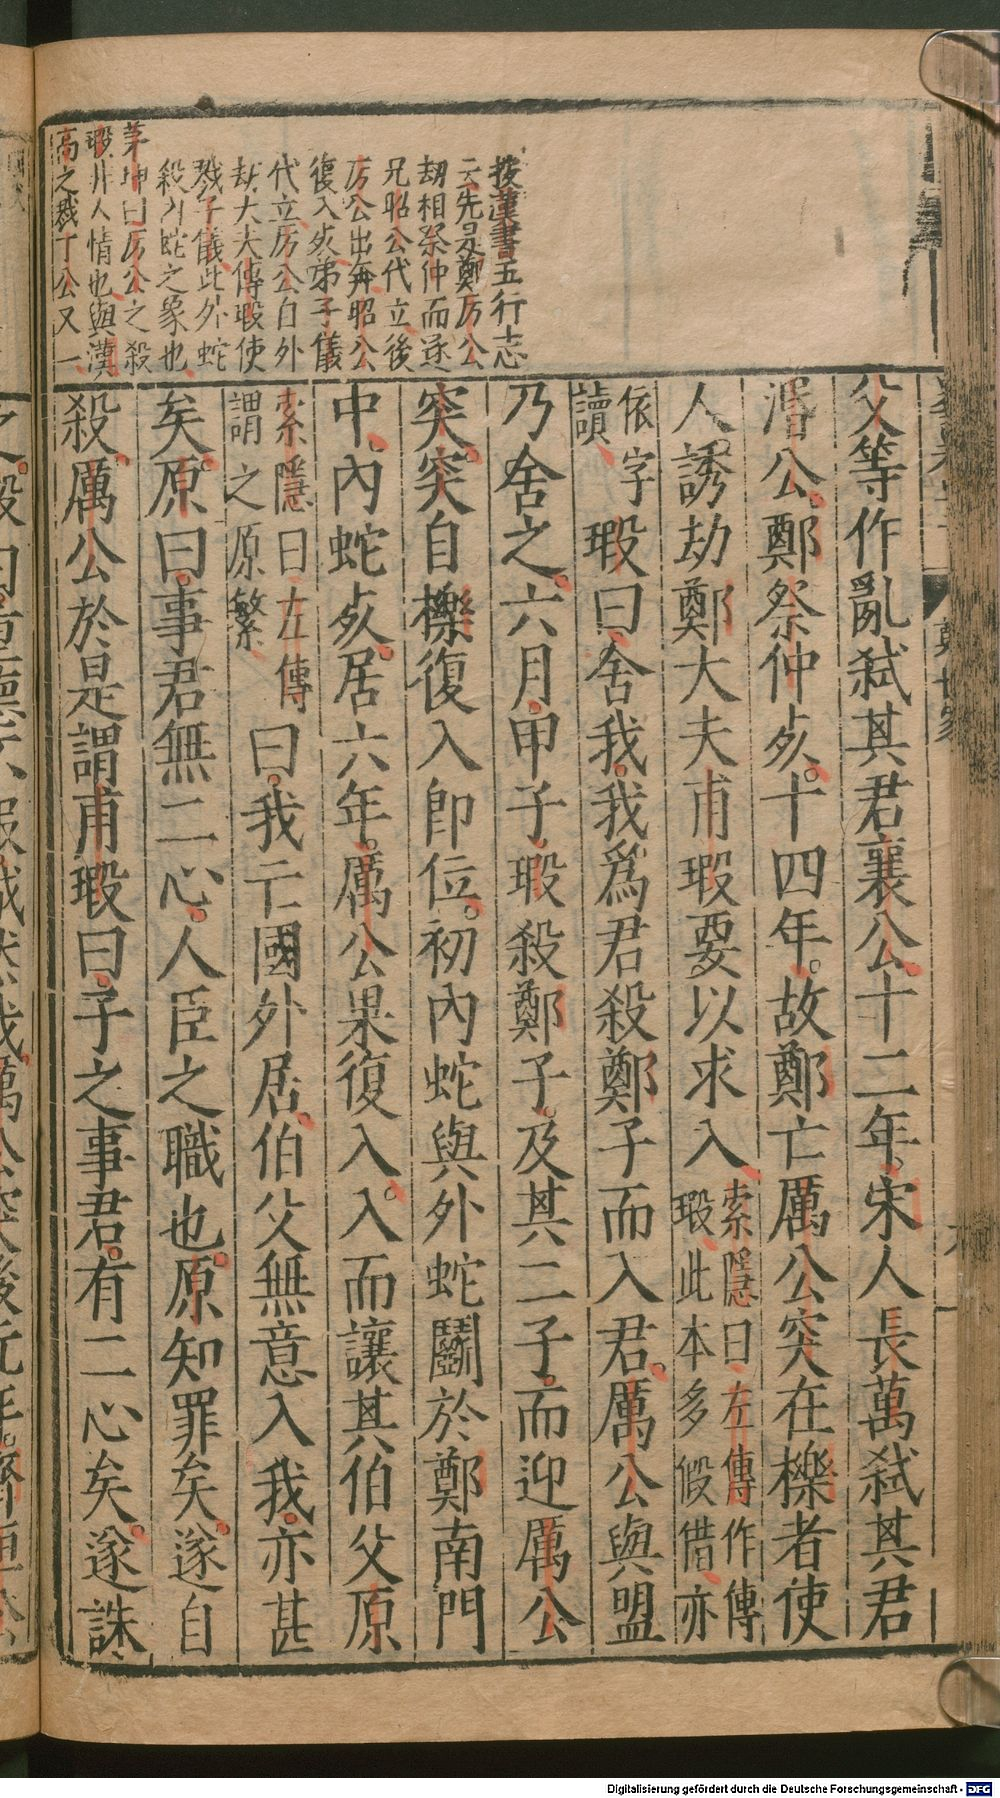 按漢書五行志
云先是鄭厉公
劫相祭仲而逐
兄昭公代立後
厉公出奔昭公
復入死弟子儀
代立厉公自外
劫大夫傅瑕使
戮子儀此外蛇
殺內蛇之象也
茅坤曰厉公之殺
瑕非人情也與漢
高之戮丁公又一
父等作亂弑其君襄公十二年宋人長萬弑其君
湣公鄭祭仲死十四年故鄭亡厲公突在櫟者使
人誘劫鄭大夫甫瑕要以求入索隱曰左傳作傅
瑕此本多假借亦
依字
讀瑕曰舍我我爲君殺鄭子而入君厲公與盟
乃舍之六月甲子瑕殺鄭子及其二子而迎厲公
突突自櫟復入卽位初內蛇與外蛇鬭於鄭南門
中內蛇死居六年厲公果復入入而讓其伯父原
索隱曰左傳
謂之原繁曰我亡國外居伯父無意入我亦甚
矣原曰事君無二心人臣之職也原知罪矣遂自
殺厲公於是謂甫瑕曰子之事君有二心矣遂誅
鄭世家
Digitalisierung gefördert durch die Deutsche Forschungsgemeinschaft - DFG